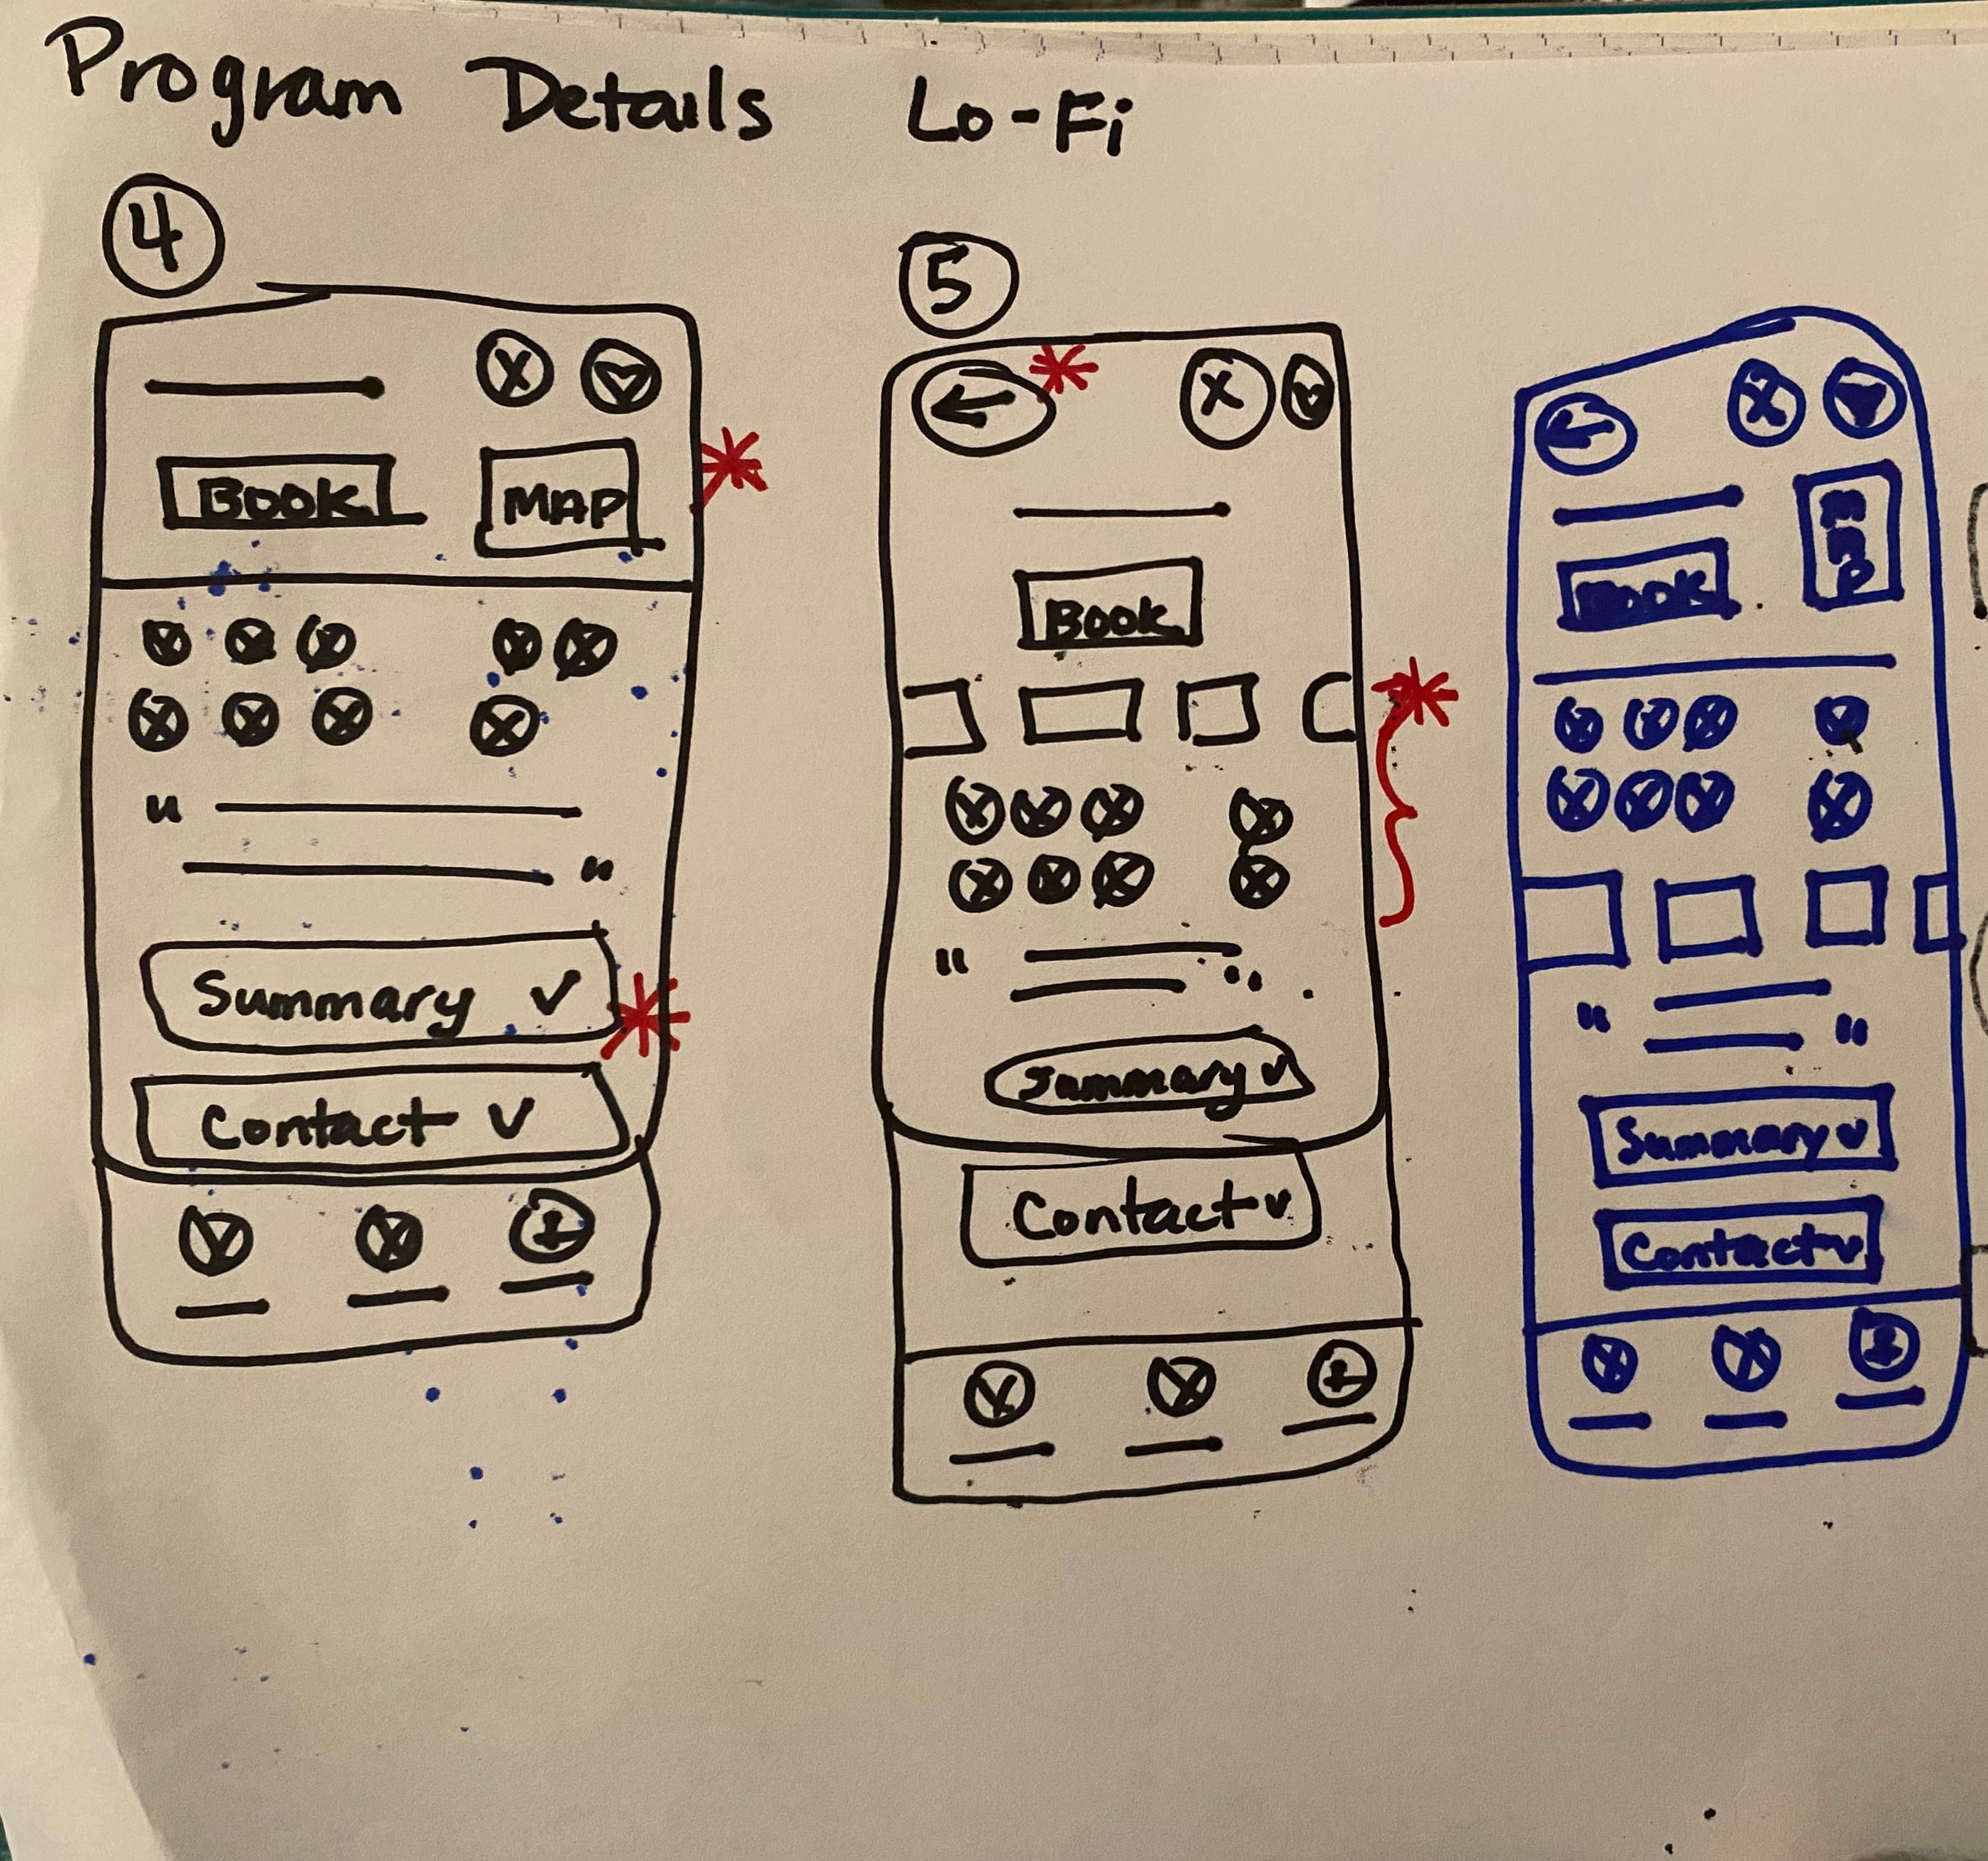 Program Details Lo-Fi
4
BOOK MAP
" "
Summary
Contact
5
Book
"
Summary
Contact
Map
Book
" "
Summary
Contact